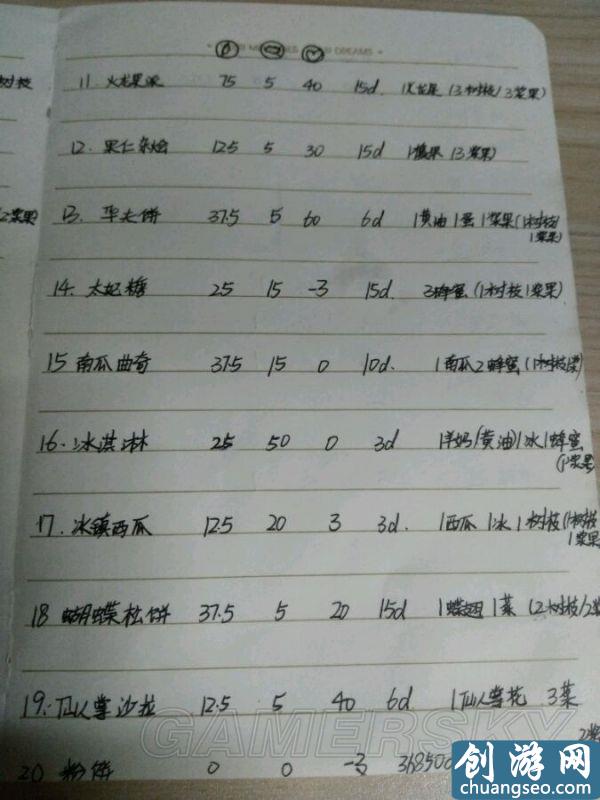 树枝
DREAMS
11. 火龙果派 75 5 40 15d 1火龙果 (3树枝/3浆果)
12. 果仁杂烩 12.5 5 30 15d 1 (3浆果)
2浆果)
13. 华夫饼 37.5 5 60 6d 1黄油1蛋1浆果(1树枝/
1浆果)
14. 太妃糖 25 15 -3 15d. 3蜂蜜(1树枝1浆果)
15 南瓜曲奇 37.5 15 0 10d. 1南瓜2蜂蜜(1树枝
16. 冰淇淋 25 50 0 3d 1羊奶(黄油)1冰1蜂蜜
(1浆果)
17. 冰镇西瓜 12.5 20 3 3d. 1西瓜1冰1树枝(1树枝
1浆果)
18 蝴蝶松饼 37.5 5 20 15d 1蝶翅1菜(2树枝/2
19. 仙人掌沙拉 12.5 5 40 6d 1仙人掌花 3菜
20 粉饼 0 0 -3 36850d
GAMERSKY
创游网
chuangseo.com